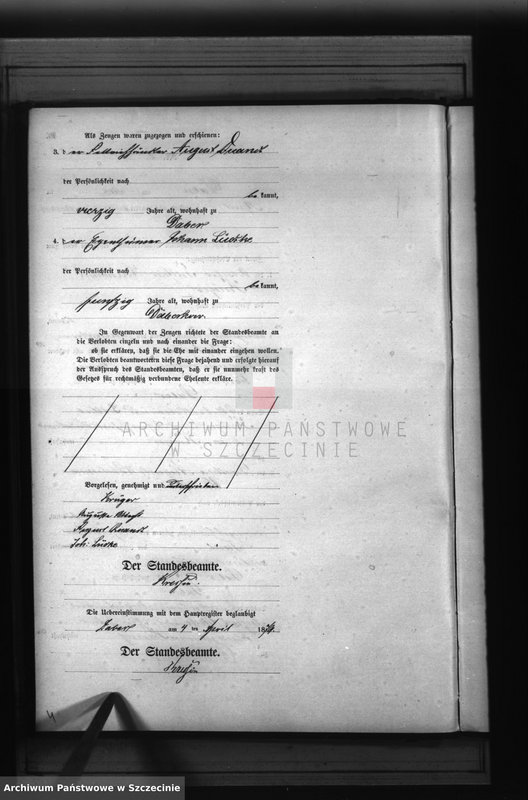 Als Zeugen waren zugezogen und erschienen:
3. der August
der Persönlichkeit nach
bekannt,
vierzig Jahre alt, wohnhaft zu
Daber
4. der Eigenthümer Johann Lüdtke
der Persönlichkeit nach
bekannt,
funfzig Jahre alt, wohnhaft zu
Daberkow.
In Gegenwart der Zeugen richtete der Standesbeamte an
die Verlobten einzeln und nach einander die Frage:
ob sie erklären, daß sie die Ehe mit einander eingehen wollen.
Die Verlobten beantworteten diese Frage bejahend und erfolgte hierauf
der Ausspruch des Standesbeamten, daß er sie nunmehr kraft des
Gesetzes für rechtmäßig verbundene Eheleute erkläre.
ARCHIWUM PAŃSTWOWE
W SZCZECINIE
Vorgelesen, genehmigt und unterschrieben
Krüger
Auguste
August
Joh: Lüdke
Der Standesbeamte.
Die Uebereinstimmung mit dem Hauptregister beglaubigt
Daber am 4 ten April 187
Der Standesbeamte.
4
Archiwum Państwowe w Szczecinie